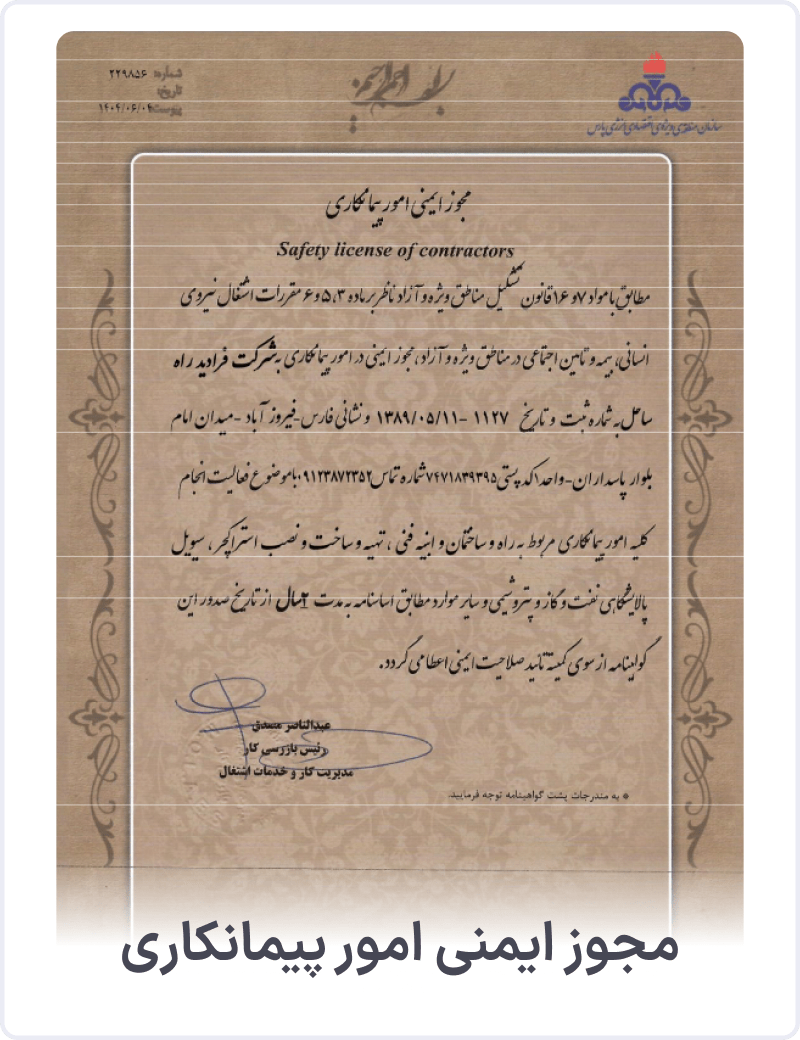 شماره: ۲۲۹۸۵۶
تاریخ:
پیوست: ۱۴۰۴/۰۶/۰۴
سازمان منطقه‌ی ویژه‌ی اقتصادی انرژی پارس
مجوز ایمنی امور پیمانکاری
Safety license of contractors
مطابق با مواد ۷ و ۱۶ قانون تشکیل مناطق ویژه و آزاد ناظر بر ماده ۳، ۵ و ۶ مقررات اشتغال نیروی
انسانی، بیمه و تامین اجتماعی در مناطق ویژه و آزاد، مجوز ایمنی در امور پیمانکاری به شرکت فرادید راه
ساحل به شماره ثبت و تاریخ ۱۱۲۷ - ۱۳۸۹/۰۵/۱۱ و نشانی فارس-فیروز آباد -میدان امام
بلوار پاسداران-واحد۱ کد پستی ۷۴۷۱۸۳۹۳۹۵ شماره تماس ۰۹۱۲۳۸۷۲۳۵۲ با موضوع فعالیت انجام
کلیه امور پیمانکاری مربوط به راه و ساختمان و ابنیه فنی ، تهیه و ساخت و نصب استراکچر ، سیویل
پالایشگاهی نفت و گاز و پتروشیمی و سایر موارد مطابق اساسنامه به مدت ۲سال از تاریخ صدور این
گواهینامه از سوی کمیته تائید صلاحیت ایمنی اعطا می گردد.
عبدالناصر متصدق
رئیس بازرسی کار
مدیریت کار و خدمات اشتغال
* به مندرجات پشت گواهینامه توجه فرمایید.
مجوز ایمنی امور پیمانکاری